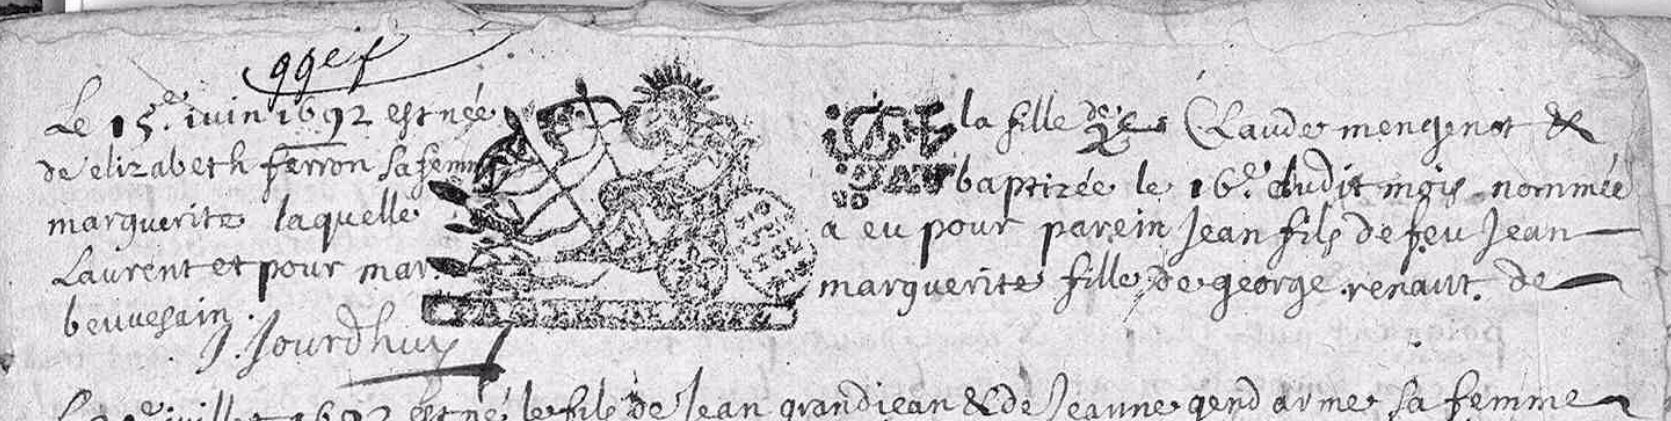 Le 15e iuin 1692 est née la fille de Claude mengenot &
de elizabeth ferron sa femme baptizée le 16e dudit mois nommée
marguerite laquelle a eu pour parein Jean fils de feu Jean
Laurent et pour mar marguerite fille de george renaut. de
beuvesain.
J. Jourdhuy
iuillet 1692 est né le fils de Jean grandiean & de Jeanne gendarme sa femme